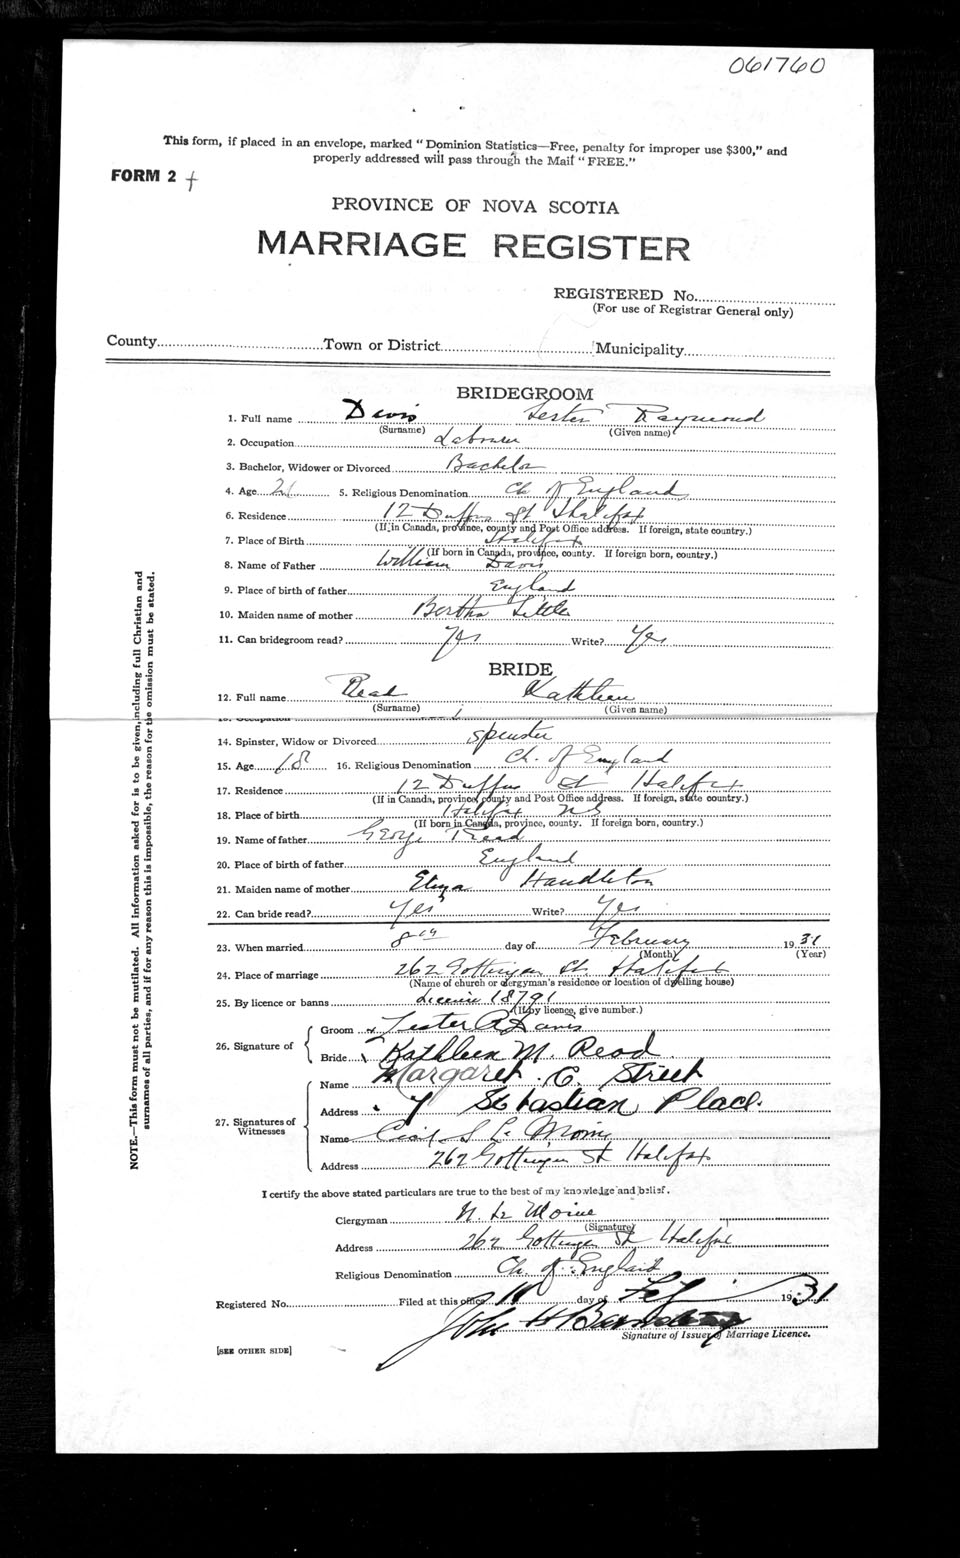 061760
This form, if placed in an envelope, marked "Dominion Statistics—Free, penalty for improper use $300," and
properly addressed will pass through the Mail "FREE."
FORM 2
PROVINCE OF NOVA SCOTIA
MARRIAGE REGISTER
REGISTERED No.
(For use of Registrar General only)
County Town or District Municipality
BRIDEGROOM
1. Full name Davis Lester Raymond
(Surname) (Given name)
2. Occupation Laborer
3. Bachelor, Widower or Divorced Bachelor
4. Age 21 5. Religious Denomination Ch of England
6. Residence 12 Duffus St Halifax
(If in Canada, province, county and Post Office address. If foreign, state country.)
7. Place of Birth Halifax
(If born in Canada, province, county. If foreign born, country.)
8. Name of Father William Davis
9. Place of birth of father England
10. Maiden name of mother Bertha Little
11. Can bridegroom read? Yes Write? Yes
BRIDE
12. Full name Read Kathleen
(Surname) (Given name)
13. Occupation
14. Spinster, Widow or Divorced Spinster
15. Age 18 16. Religious Denomination Ch. of England
17. Residence 12 Duffus St Halifax
(If in Canada, province, county and Post Office address. If foreign, state country.)
18. Place of birth Halifax NS
(If born in Canada, province, county. If foreign born, country.)
19. Name of father George Read
20. Place of birth of father England
21. Maiden name of mother Eliza
22. Can bride read? Yes Write? Yes
23. When married 8th day of February 1931
(Month) (Year)
24. Place of marriage 262 Gottingen St. Halifax
(Name of church or clergyman's residence or location of dwelling house)
25. By licence or banns Licence 18791
(If by licence, give number.)
26. Signature of
Groom Lester R Davis
Bride Kathleen M. Read
27. Signatures of Witnesses
Name Margaret C. Street
Address 7 Sebastian Place.
Name Le Moine
Address 262 Gottingen St Halifax
I certify the above stated particulars are true to the best of my knowledge and belief.
Clergyman N. Le Moine
(Signature)
Address 262 Gottingen St Halifax
Religious Denomination Ch. of England
Registered No. Filed at this office day of Feb 1931
John H
Signature of Issuer of Marriage Licence.
[SEE OTHER SIDE]
NOTE.—This form must not be mutilated. All Information asked for is to be given, including full Christian and
surnames of all parties, and if for any reason this is impossible, the reason for the omission must be stated.